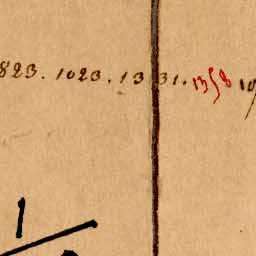 823. 1023. 1331. 1358
1